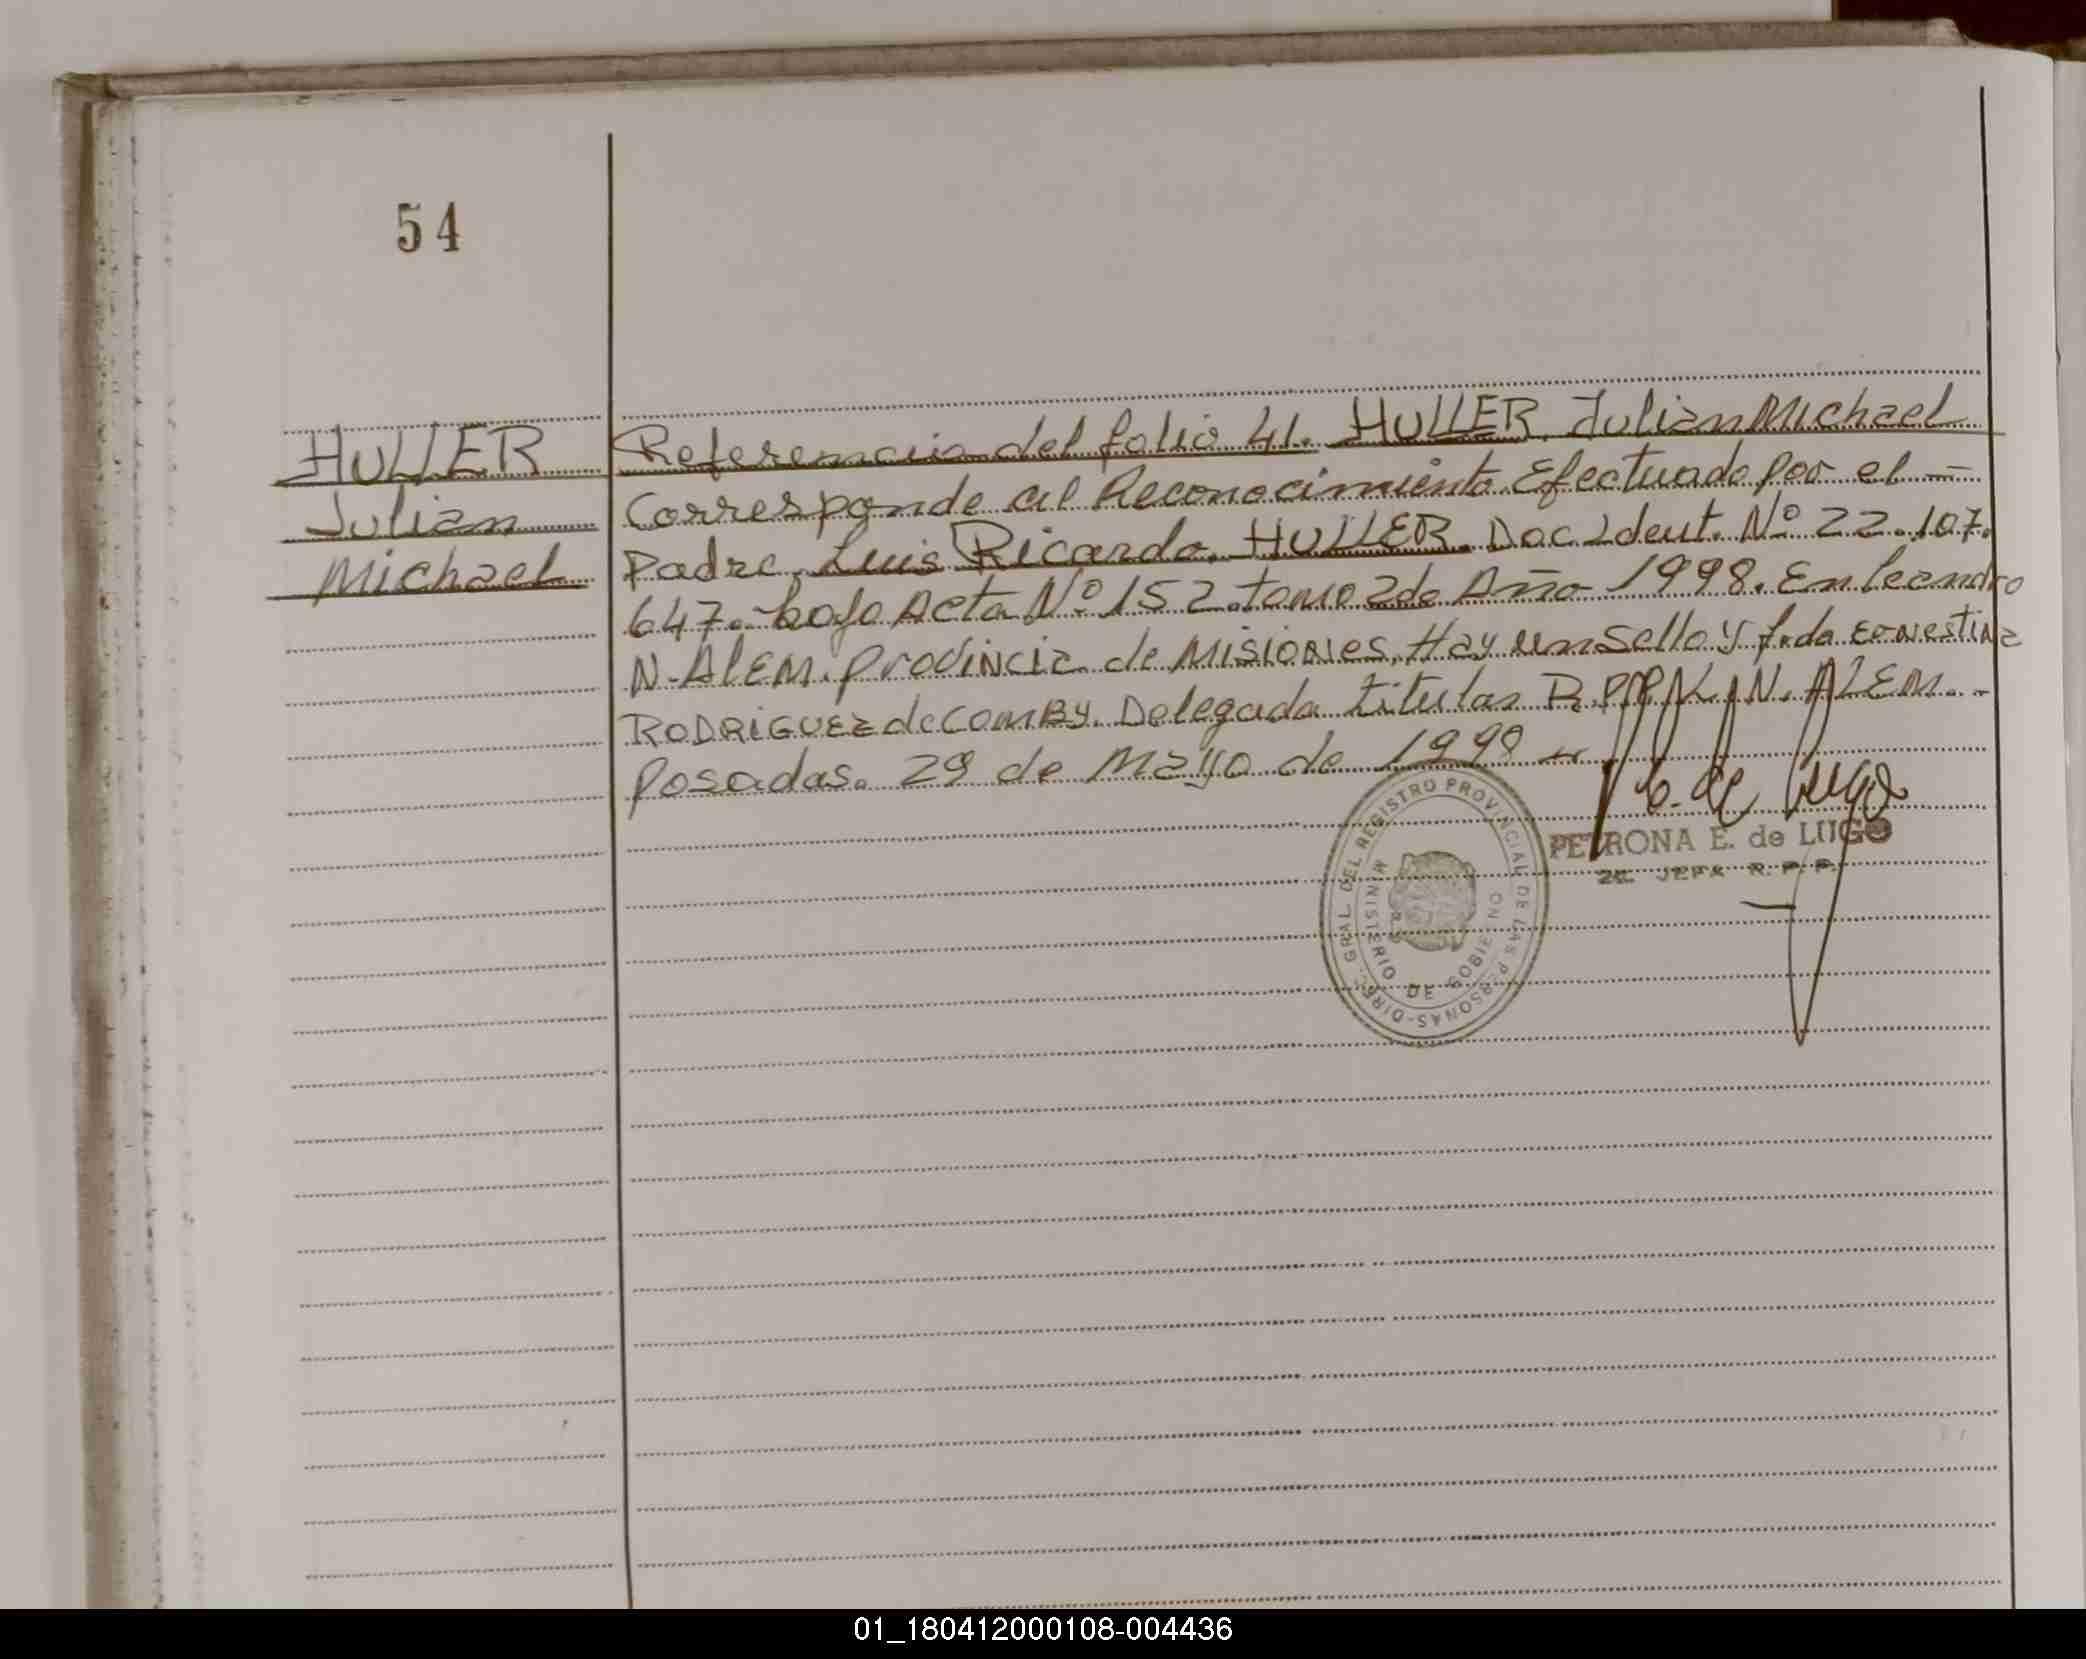 54
HULLER
Julian
Michael
Referencia del folio 41. HULLER, Julian Michael
Corresponde al Reconocimiento Efectuado por el —
Padre, Luis Ricardo, HULLER. Doc Ident. Nº 22.107.
647. bajo Acta Nº 152. tomo 2do Año 1998. En leandro
N. AlEM. provincia de Misiones. Hay un sello y f.da
RODRIGUEZ de COMBY. Delegada titular R.P.P. N. ALEM. -
Posadas. 29 de Mayo de 1999
E. de Lugo
PETRONA E. de LUGO
2a. JEFA R. P. P.
DIREC. GRAL. DEL REGISTRO PROVINCIAL DE LAS PERSONAS-
MINISTERIO DE GOBIERNO
01_180412000108-004436